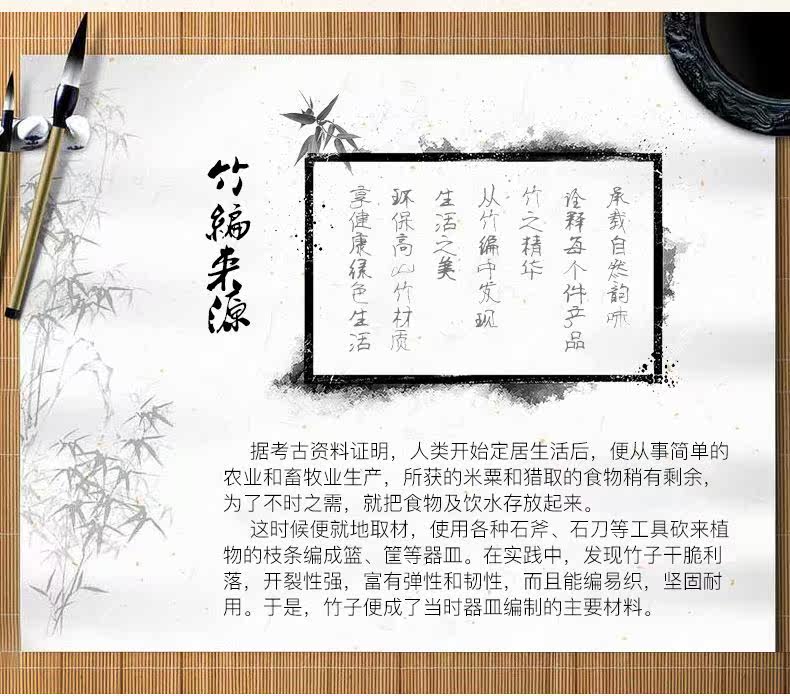 竹编来源
承载自然韵味
诠释每个件产品
竹之精华
从竹编中发现
生活之美
环保高山竹材质
享健康绿色生活
据考古资料证明，人类开始定居生活后，便从事简单的
农业和畜牧业生产，所获的米粟和猎取的食物稍有剩余，
为了不时之需，就把食物及饮水存放起来。
这时候便就地取材，使用各种石斧、石刀等工具砍来植
物的枝条编成篮、筐等器皿。在实践中，发现竹子干脆利
落，开裂性强，富有弹性和韧性，而且能编易织，坚固耐
用。于是，竹子便成了当时器皿编制的主要材料。